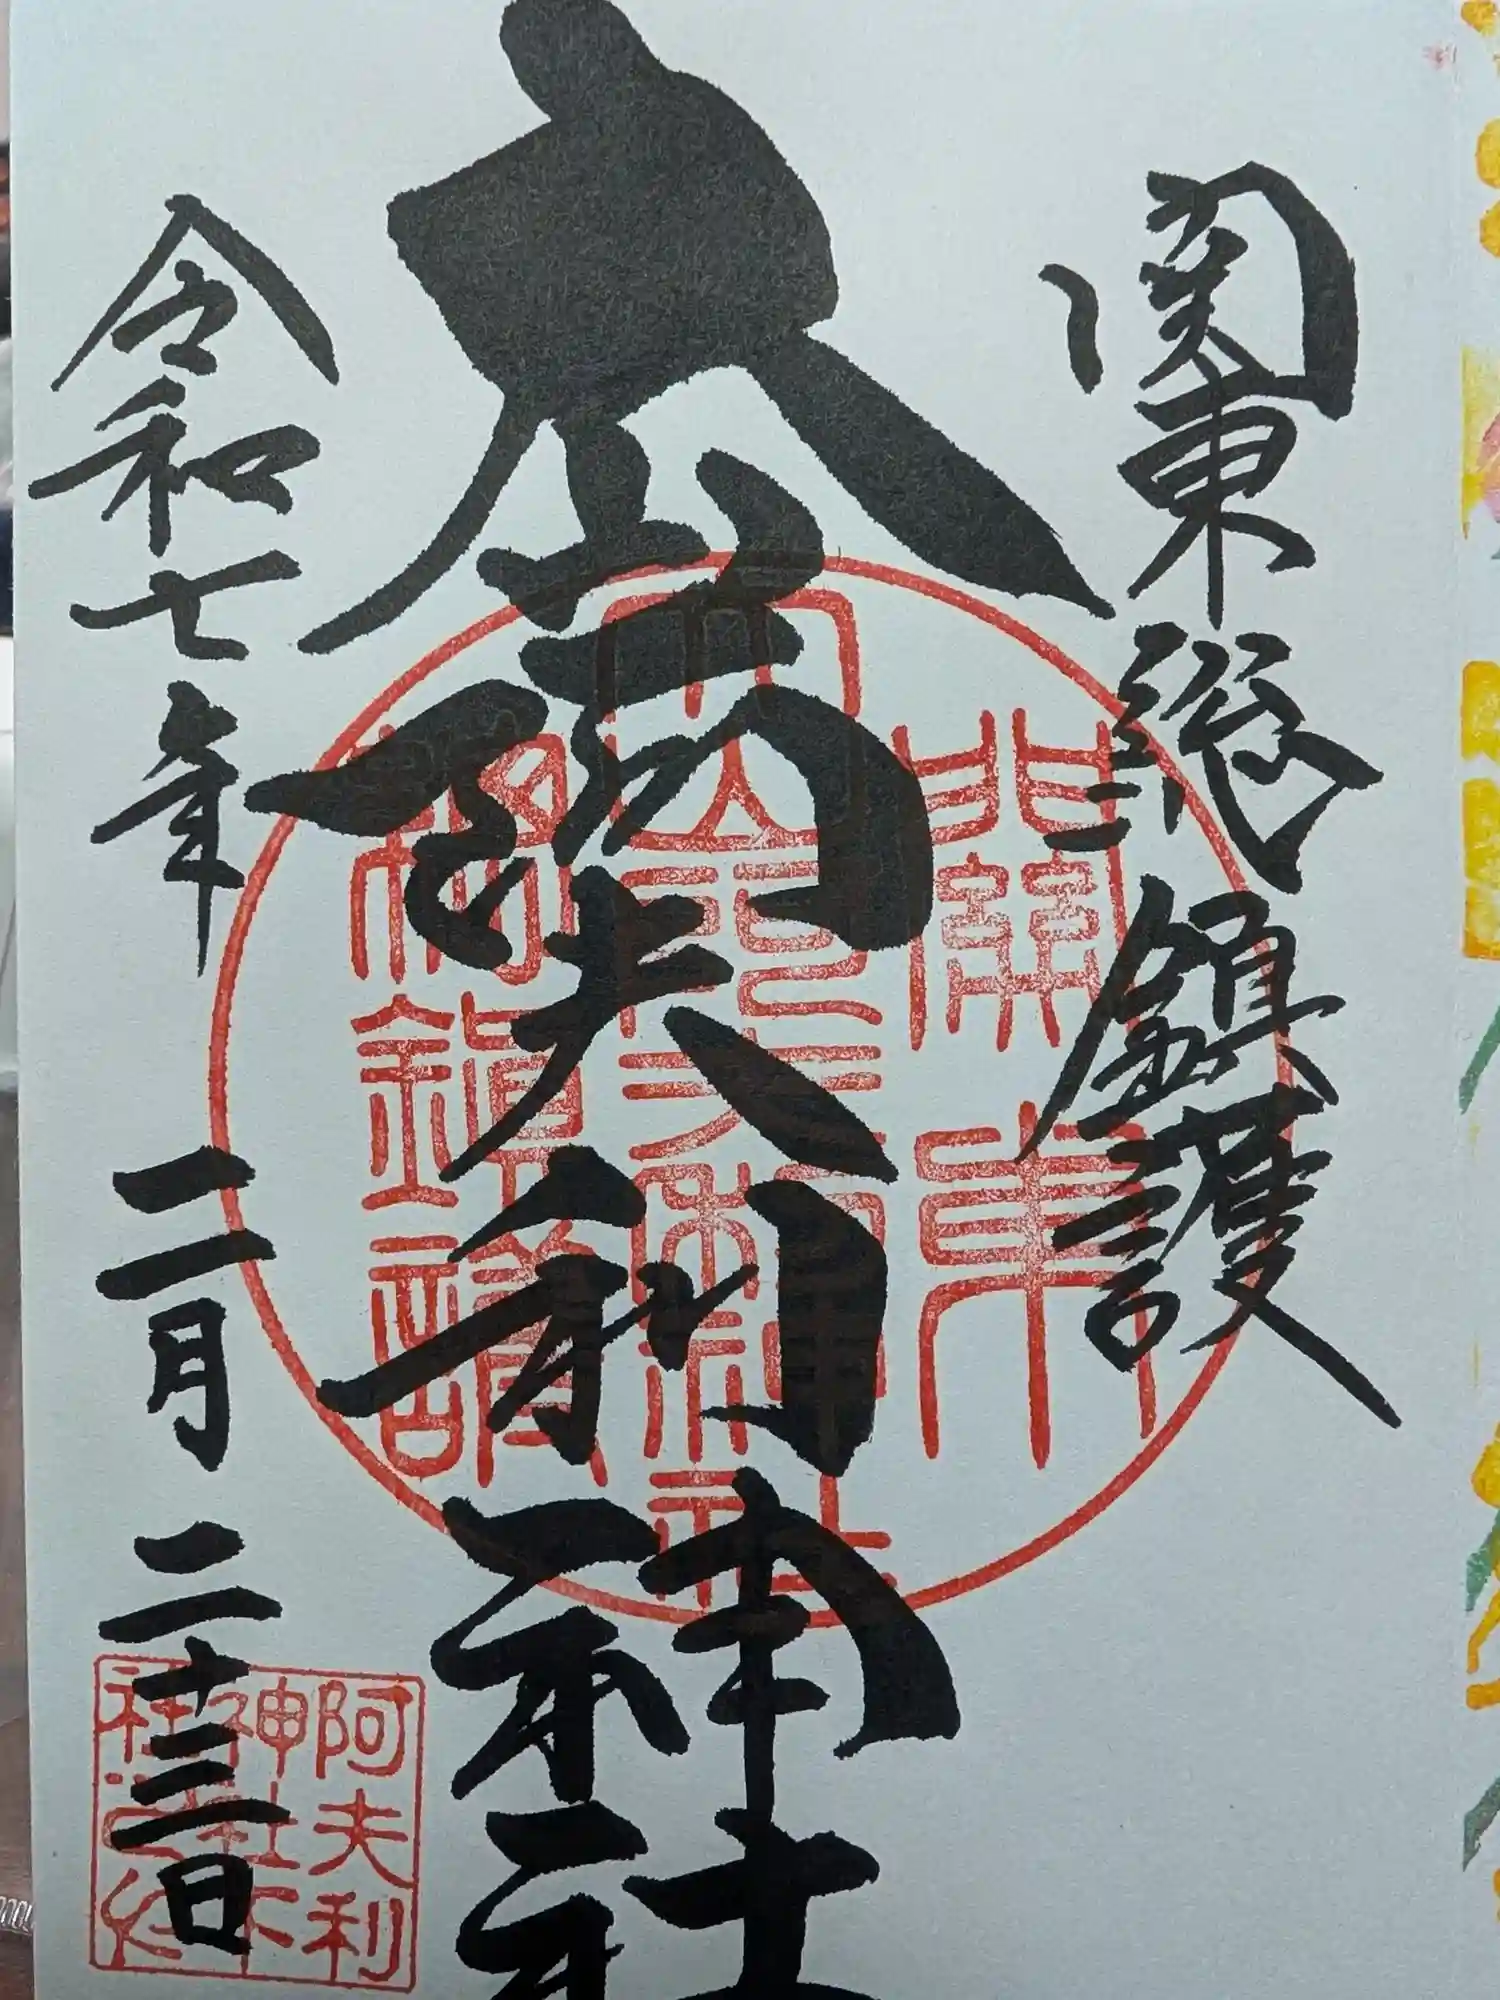 関東総鎮護
大山阿夫利神社
令和七年二月二十三日
關東
大山阿夫利神社
鎮護
阿夫利
神社下
社之印